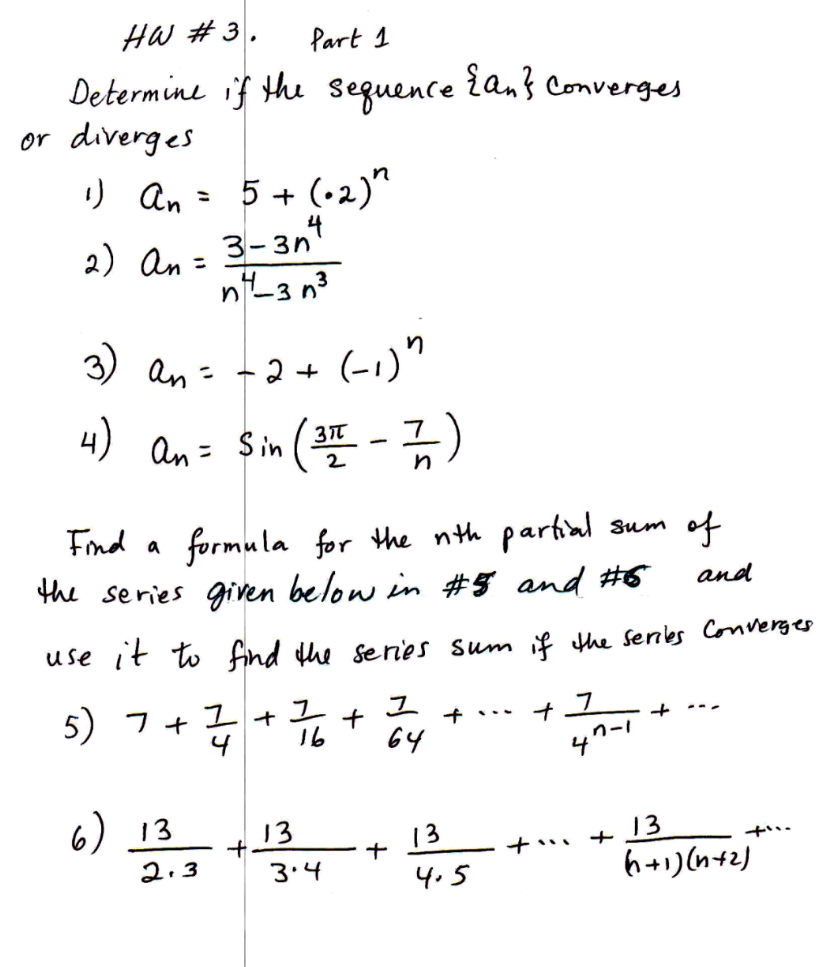 HW # 3. Part 1
Determine if the sequence {an} converges
or diverges
1) an = 5 + (.2)^n
2) an = (3 - 3n^4)/(n^4 - 3n^3)
3) an = -2 + (-1)^n
4) an = Sin(3π/2 - 7/n)
Find a formula for the nth partial sum of
the series given below in #5 and #6 and
use it to find the series sum if the series Converges
5) 7 + 7/4 + 7/16 + 7/64 + ... + 7/4^(n-1) + ...
6) 13/(2.3) + 13/(3.4) + 13/(4.5) + ... + 13/((n+1)(n+2)) + ...